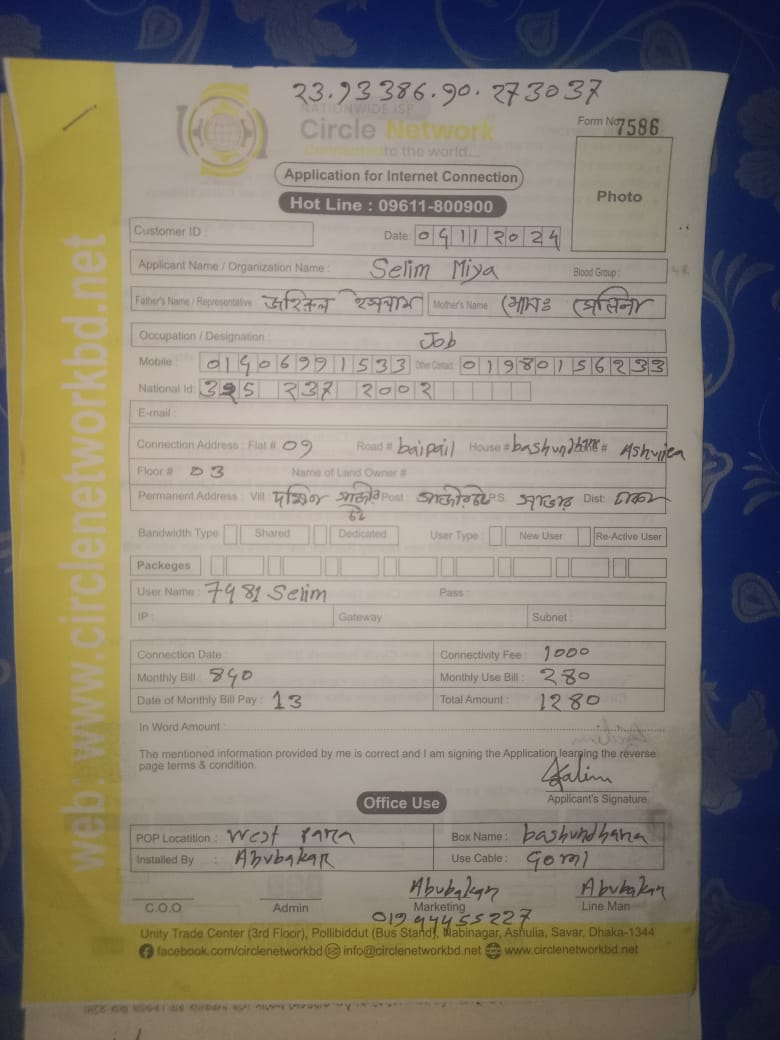 23.93386.90.273037
NATIONWIDE ISP
Circle Network
Connected to the world....
Form No 7586
Application for Internet Connection
Photo
Hot Line : 09611-800900
Customer ID :
Date: 04 11 2024
Applicant Name / Organization Name : Selim Miya Blood Group :
Father's Name / Representative : Mother's Name মোছাঃ সেলিনা
Occupation / Designation : Job
Mobile : 01406991533 Other Contact: 01980156233
National Id: 325 237 2002
E-mail :
Connection Address : Flat # 09 Road # baipail House # bashundhara Ashuliea
Floor # 03 Name of Land Owner #
Permanent Address : Vill দক্ষিন গাজীর চট Post গাজীরচট PS সাভার Dist: ঢাকা
Bandwidth Type Shared Dedicated User Type : New User Re-Active User
Packeges
User Name : 7481 Selim Pass :
IP : Gateway Subnet :
Connection Date : Connectivity Fee : 1000
Monthly Bill : 840 Monthly Use Bill : 280
Date of Monthly Bill Pay : 13 Total Amount : 1280
In Word Amount :
The mentioned information provided by me is correct and I am signing the Application learning the reverse
page terms & condition.
Salim
Applicant's Signature
Office Use
POP Locatition : West para Box Name : bashundhara
Installed By : Abubakar Use Cable :
Abubakar Abubakar
C.O.O Admin Marketing Line Man
01944455227
Unity Trade Center (3rd Floor), Pollibiddut (Bus Stand), Nabinagar, Ashulia, Savar, Dhaka-1344
facebook.com/circlenetworkbd info@circlenetworkbd.net www.circlenetworkbd.net
web: www.circlenetworkbd.net